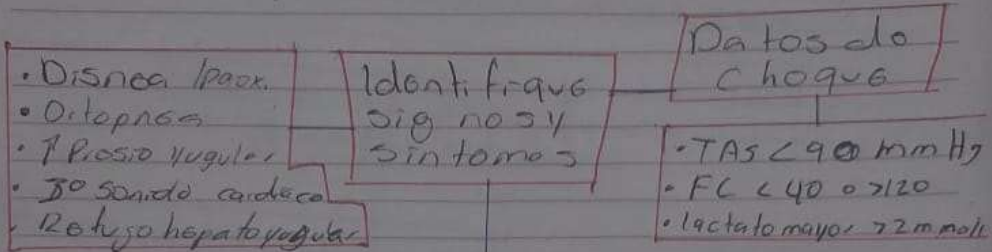 • Disnea /paox.
• Ortopnea
• ↑ Presio yugular
• 3º sonido cardiaco
• Reflujo hepatoyugular
Identifique
signos y
sintomas
Datos de
choque
• TAS < 90 mmHg
• FC < 40 o >120
• lactato mayor >2 mmol